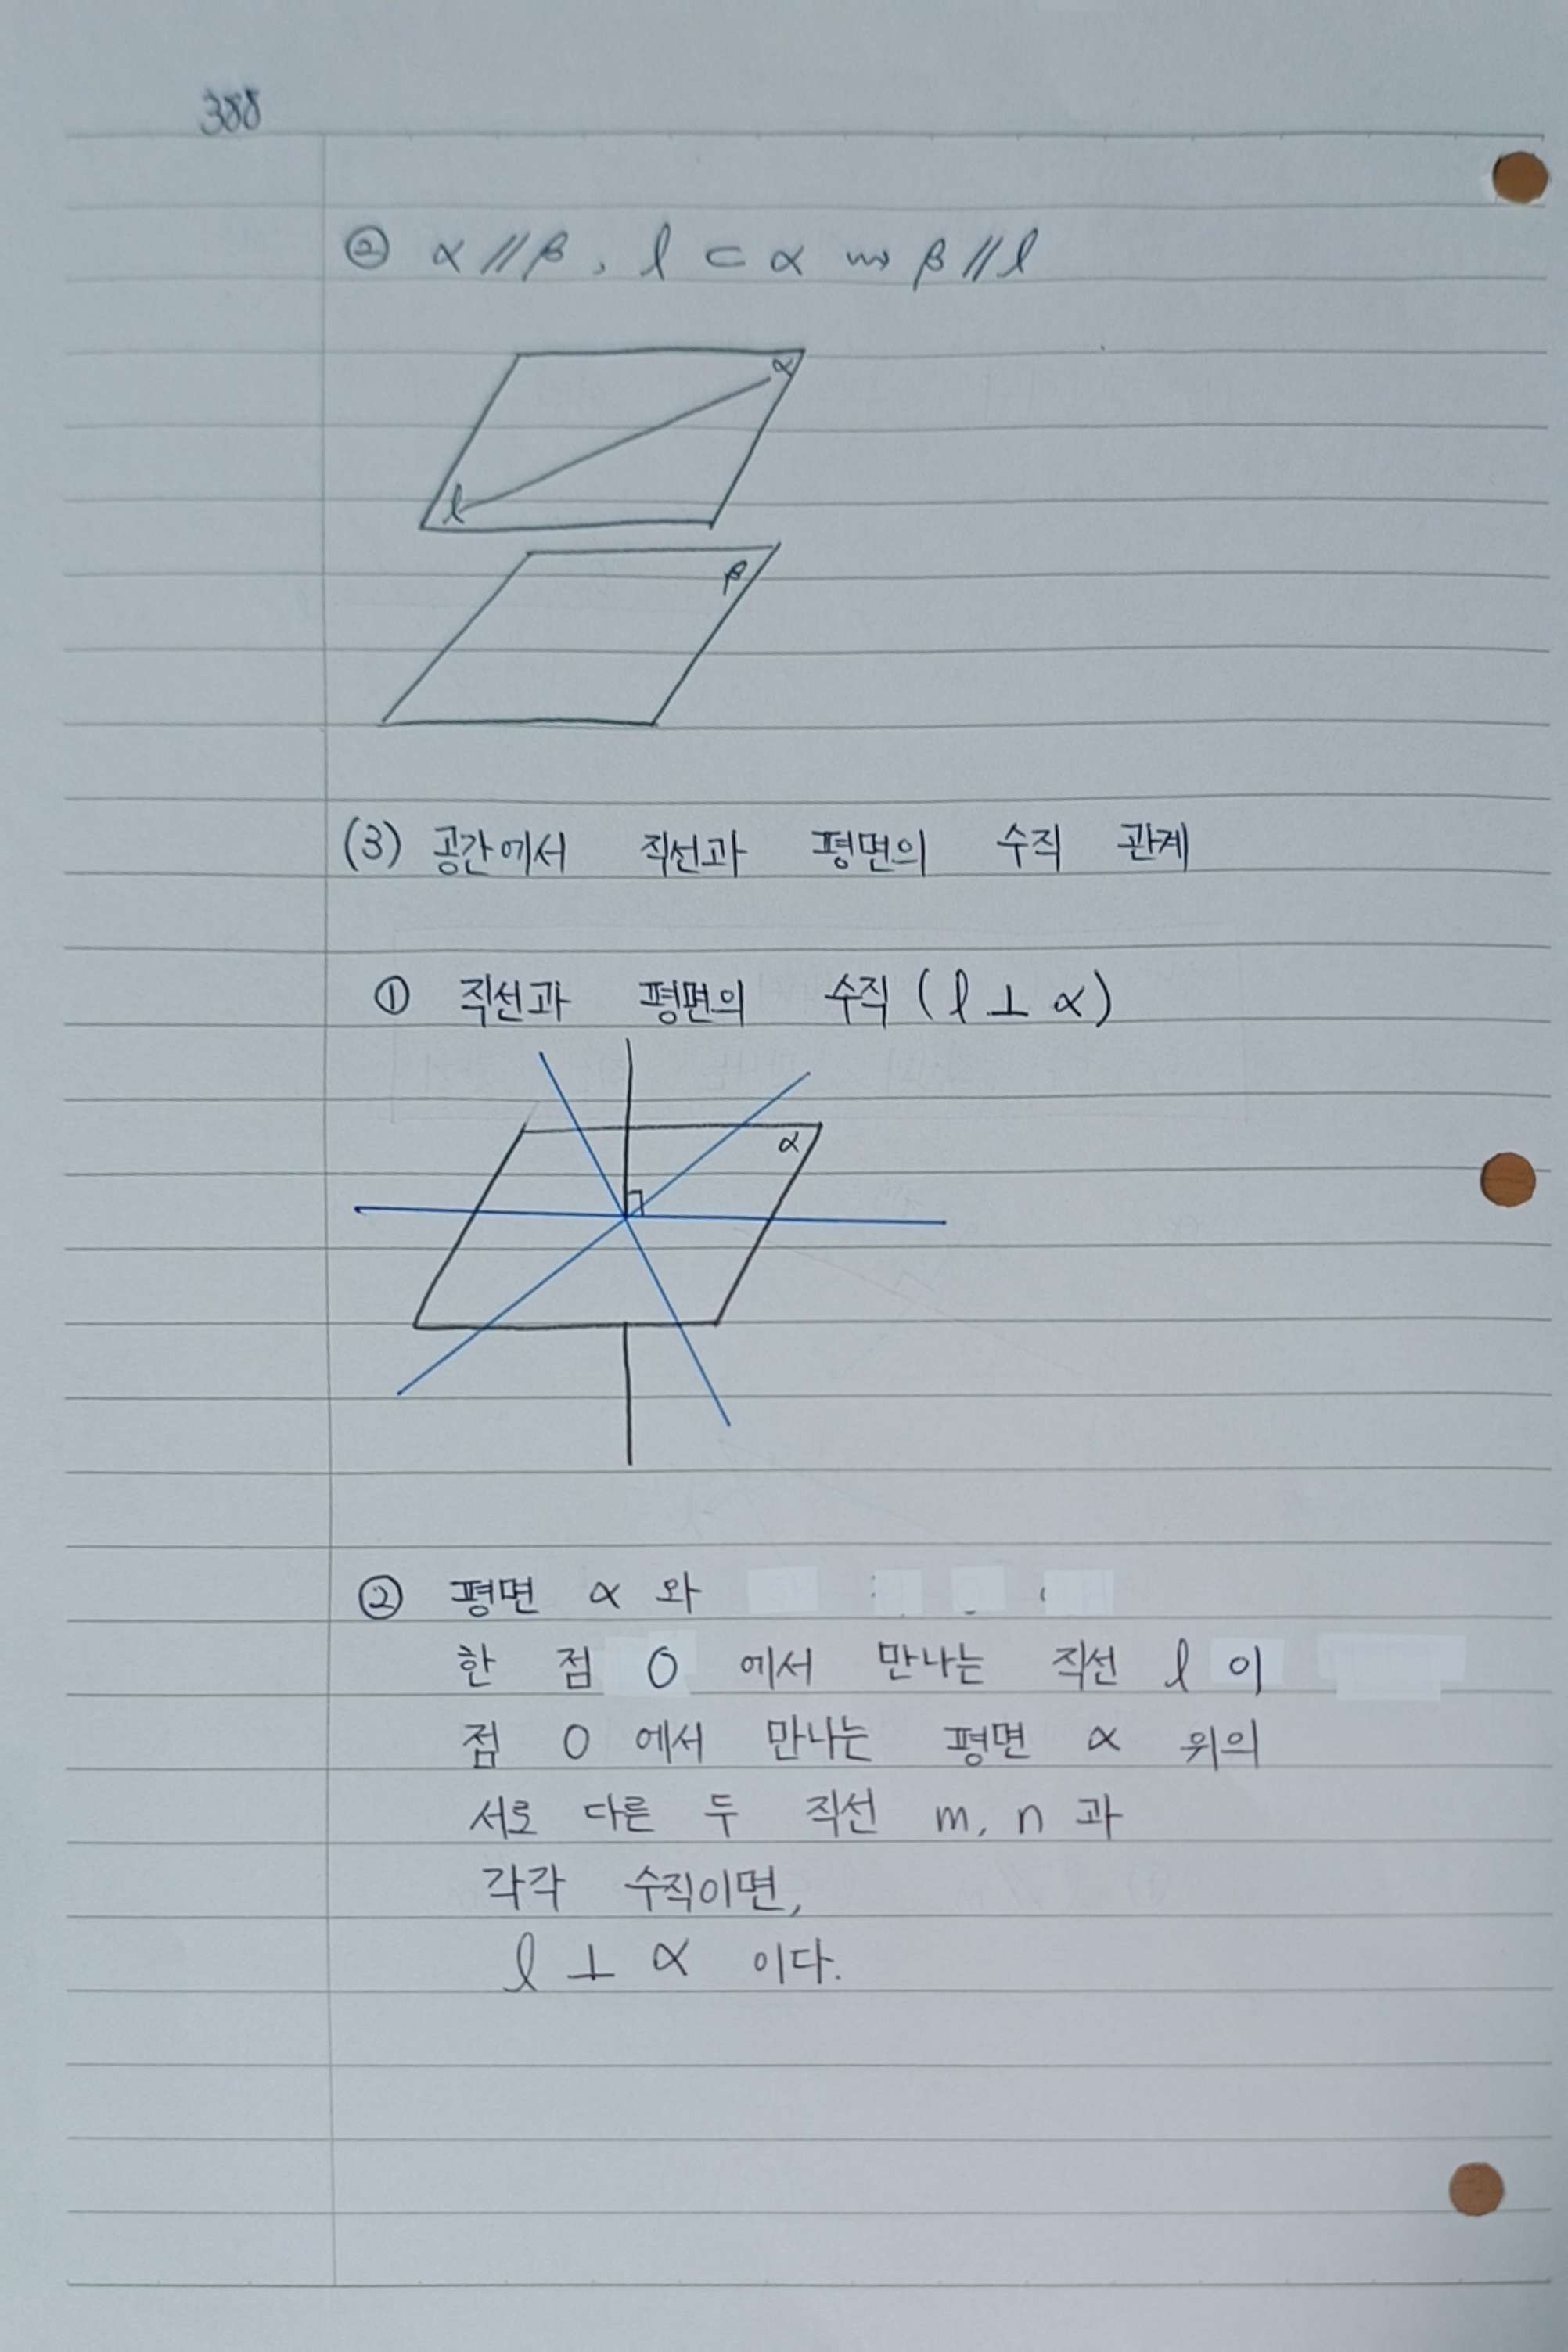 388
② α // β, l ⊂ α ⇝ β // l
α
l
β
(3) 공간에서 직선과 평면의 수직 관계
① 직선과 평면의 수직 (l ⊥ α)
α
② 평면 α 와
한 점 O 에서 만나는 직선 l 이
점 O 에서 만나는 평면 α 위의
서로 다른 두 직선 m, n 과
각각 수직이면,
l ⊥ α 이다.